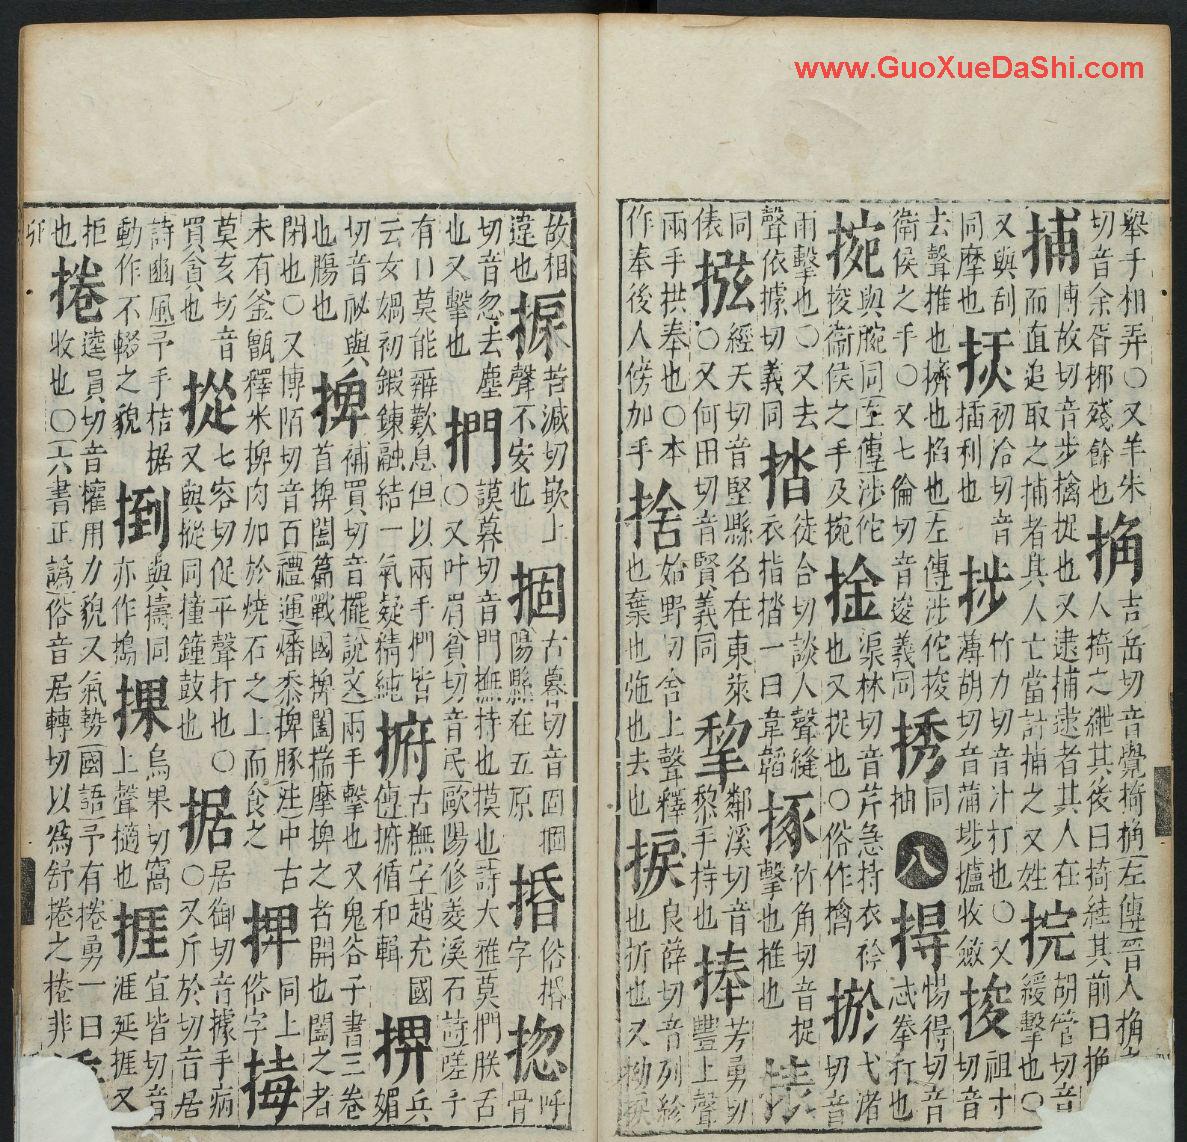 www.GuoXueDaShi.com
舉手相弄○又羊朱
切音余胥挪殘餘也
捔
吉岳切音覺掎捔左傳晉人捔
人掎之紲其後曰掎絓其前曰捔
捕
博故切音步擒捉也又逮捕逮者其人在
而直追取之捕者其人亡當討捕之又姓
捖
胡管切音
緩擊也○
又與刮
同摩也
初洽切音
插利也
捗
竹力切音汁打也○又
薄胡切音蒲捗攎收斂
捘
祖寸
切音
去聲推也擠也掐也左傳涉佗捘
衛侯之手○又七倫切音逡義同
同
抽
八
惕得切音
忒拳打也
捥
與腕同左傳涉佗
捘衛侯之手及捥
捦
渠林切音芹急持衣衿
也又捉也○俗作擒
弋渚
切音
雨擊也○又去
聲依據切義同
徒合切談人聲縫
衣指 一曰韋韜
竹角切音捉
擊也推也
同
俵
經天切音堅縣名在東萊
○又何田切音賢義同
鄰溪切音
黎手持也
捧
芳勇切
豐上聲
兩手拱奉也○本
作奉後人傍加手
捨
始野切舍上聲釋
也棄也施也去也
捩
良薛切音列紾
也折也又拗捩
故相
違也
苦減切歉上
聲不安也
古慕切音固
陽縣在五原
捪
俗
字
呼
骨
切音忽去塵
也又擊也
捫
謨奔切音門撫持也摸也詩大雅莫捫朕舌
○又叶眉貧切音民歐陽修菱溪石詩嗟予
有口莫能辯歎息但以兩手捫皆
云女媧初鍜鍊融結一氣凝精純
捬
古撫字趙充國
傳捬循和輯
兵
媚
切音祕與
也膓也
捭
補買切音擺說文兩手擊也又鬼谷子書三卷
首捭闔篇戰國捭闔揣摩捭之者開也闔之者
閉也○又博陌切音百禮運燔黍捭豚注中古
未有釜甑釋米捭肉加於燒石之上而食之
同上
俗字
挴
莫亥切音
買貪也
七容切促平聲打也○
又與摐同撞鐘鼓也
据
居御切音據手病
○又斤於切音居
詩豳風予手拮据
動作不輟之貌
捯
與擣同
亦作搗
捰
烏果切窩
上聲擿也
捱
宜皆切音
涯延捱又
拒
也
捲
逵員切音權用力貌又氣勢國語予有捲勇一曰
收也○六書正譌俗音居轉切以爲舒捲之捲非